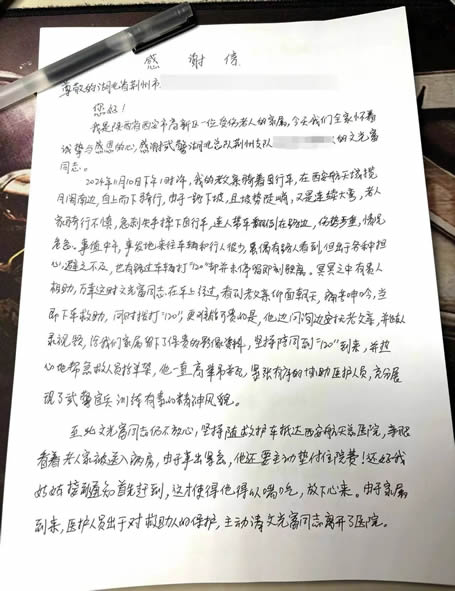 感谢信
尊敬的湖北省荆州市
您好！
我是陕西省西安市高新区一位受伤老人的家属，今天我们全家怀着
诚挚与感恩的心，感谢武警湖北总队荆州支队 的文光富
同志。
2024年11月10日下午1时许，我的老父亲骑着自行车，在西安航天城揽
月阁南边，自上而下骑行，由于一路下坡，且坡势陡峭，又是连续大弯，老人
家骑行不慎，急刹失手摔下自行车，连人带车翻倒在路边，伤势严重，情况
危急。事值中午，事发地来往车辆和行人很少，虽偶有路人看到但出于各种担
心，避之不及，也有路过车辆打"120"却并未停留即刻驶离。冥冥之中有贵人
相助，万幸这时文光富同志在车上经过，看到老父亲仰面朝天，痛苦呻吟，当
即下车救助，同时拨打"120"更难能可贵的是，他边问询边安抚老父亲，并
录视频，给我们家属留下了保贵的影像资料，坚持陪同到"120"到来，并热
心地帮急救人员抬担架，他一直 协助医护人员，充分展
现了武警官兵训练有素的精神风貌。
至此文光富同志仍不放心，坚持随救护车抵达西安航天总医院，
看着老人家被送入病房，由于事出紧急，他还要主动垫付住院费！还好我
姑姑接到通知首先赶到，这才使得他得以喘口气，放下心来。由于家属
到来，医护人员出于对救助人的保护，主动请文光富同志离开了医院。